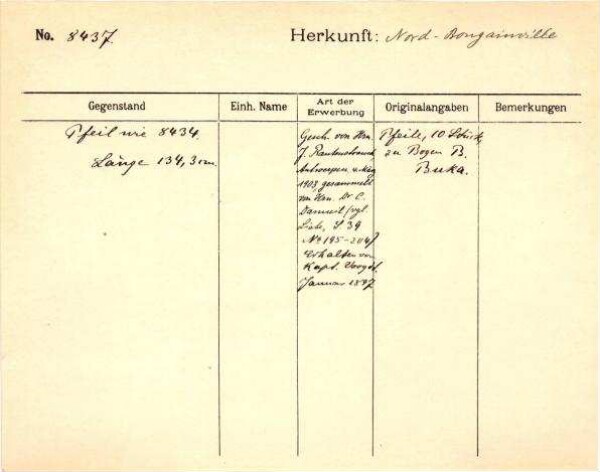 No. 8437. Herkunft: Nord-Bougainville
Gegenstand Einh. Name Art der Erwerbung Originalangaben Bemerkungen
Pfeil wie 8434.
Länge 134,3 cm
Gesch. von Hrn.
J. Rautenstrauch,
Antwerpen,
1903, gesammelt
von Hrn. Dr. C.
vgl.
Liste, S 39
No 195-204/
Erhalten von
Kapt. Voogdt.
Januar 1897
Pfeile, 10 Stück,
zu Bogen B.
Buka.